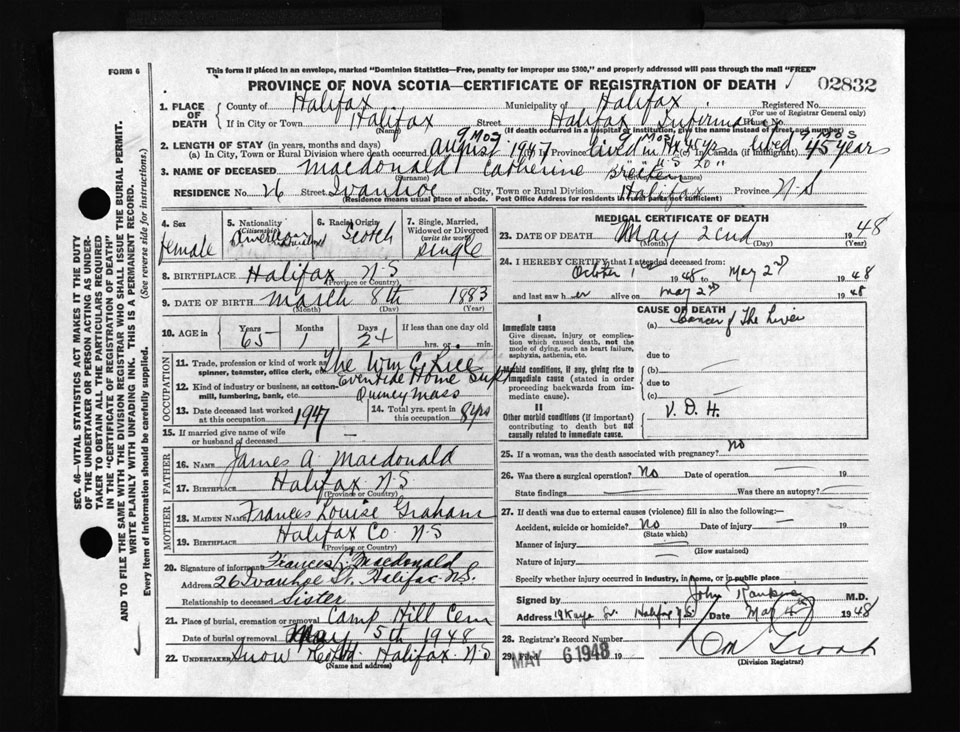 FORM 6
This form if placed in an envelope, marked "Dominion Statistics—Free, penalty for improper use $300," and properly addressed will pass through the mail "FREE"
PROVINCE OF NOVA SCOTIA—CERTIFICATE OF REGISTRATION OF DEATH
02832
SEC. 46—VITAL STATISTICS ACT MAKES IT THE DUTY OF THE UNDERTAKER OR PERSON ACTING AS UNDERTAKER TO OBTAIN ALL THE PARTICULARS REQUIRED IN THE "CERTIFICATE OF REGISTRATION OF DEATH" AND TO FILE THE SAME WITH THE DIVISION REGISTRAR WHO SHALL ISSUE THE BURIAL PERMIT.
WRITE PLAINLY WITH UNFADING INK. THIS IS A PERMANENT RECORD.
Every item of information should be carefully supplied. (See reverse side for instructions.)
1. PLACE OF DEATH
County of Halifax Municipality of Halifax Registered No.
(For use of Registrar General only)
If in City or Town Halifax Street Halifax Infirmary House No.
(Name) (If death occurred in a hospital or institution, give the name instead of street and number)
2. LENGTH OF STAY (in years, months and days) 9 Mos 9 Mos 9 mos
(a) In City, Town or Rural Division where death occurred August 1947 In Province lived in Hx 45 yrs In Canada (if immigrant) lived 45 years
" " U.S 20 "
3. NAME OF DECEASED Macdonald Catherine
(Surname) (Given names)
RESIDENCE No. 26 Street Ivanhoe City, Town or Rural Division Halifax Province N-S
(Residence means usual place of abode. Post Office Address for residents in rural parts not sufficient)
4. Sex
female
5. Nationality (Citizenship)
American
6. Racial Origin
Scotch
7. Single, Married, Widowed or Divorced (write the word)
single
8. BIRTHPLACE Halifax N-S
(Province or Country)
9. DATE OF BIRTH March 8th 1883
(Month) (Day) (Year)
10. AGE in Years Months Days If less than one day old
65 1 24 hrs. or min.
OCCUPATION
11. Trade, profession or kind of work as spinner, teamster, office clerk, etc. The Wm C Rice
12. Kind of industry or business, as cotton-mill, lumbering, bank, etc. Eventide Home Supt
Quincy Mass
13. Date deceased last worked at this occupation 1947
14. Total yrs. spent in this occupation 8 yrs
15. If married give name of wife or husband of deceased —
FATHER
16. NAME James A. Macdonald
17. BIRTHPLACE Halifax N-S
(Province or Country)
MOTHER
18. MAIDEN NAME Frances Louise Graham
19. BIRTHPLACE Halifax Co. N-S
(Province or Country)
20. Signature of informant Frances L. Macdonald
Address 26 Ivanhoe St. Halifax N.S.
Relationship to deceased Sister
21. Place of burial, cremation or removal Camp Hill Cem
Date of burial or removal May 5th 1948
22. UNDERTAKER Snow Halifax N-S
(Name and address)
MEDICAL CERTIFICATE OF DEATH
23. DATE OF DEATH May 22nd 1948
(Month) (Day) (Year)
24. I HEREBY CERTIFY that I attended deceased from:
October 1st 1948 to May 2nd 1948
and last saw her alive on May 2nd 1948
CAUSE OF DEATH
I
Immediate cause
Give disease, injury or complication which caused death, not the mode of dying, such as heart failure, asphyxia, asthenia, etc.
(a) Cancer of The Liver
due to
Morbid conditions, if any, giving rise to immediate cause (stated in order proceeding backwards from immediate cause).
(b)
due to
(c)
II
Other morbid conditions (if important) contributing to death but not causally related to immediate cause.
V. D. H.
25. If a woman, was the death associated with pregnancy? No
26. Was there a surgical operation? No Date of operation 19
State findings Was there an autopsy?
27. If death was due to external causes (violence) fill in also the following:—
Accident, suicide or homicide? No Date of injury 19
(State which)
Manner of injury
(How sustained)
Nature of injury
Specify whether injury occurred in industry, in home, or in public place
Signed by John Rankine M.D.
Address 19 Kaye St. Halifax N.S. Date May 4th 1948
28. Registrar's Record Number
29. Filed MAY 6 1948 19
(Division Registrar)